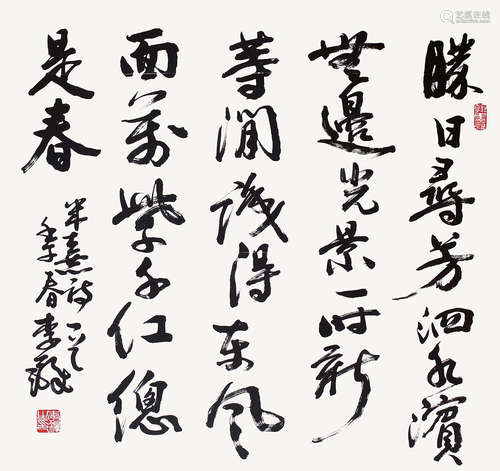 勝日尋芳泗水濱
無邊光景一時新
等閒識得東風
面萬紫千紅總
是春
朱熹詩一首
季春李